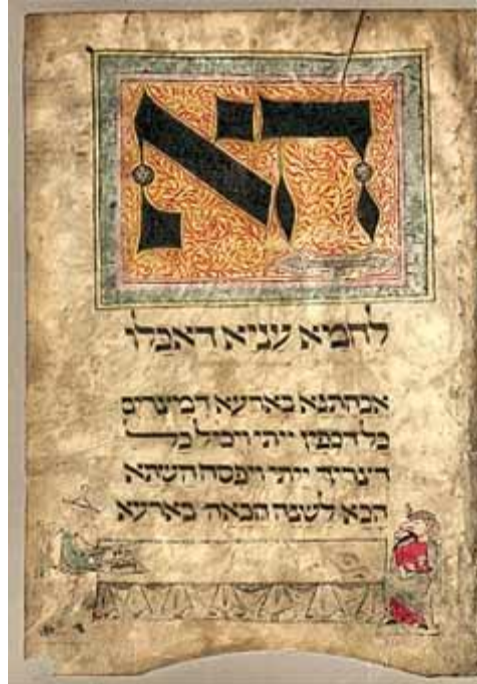 הא
לחמא עניא דאכלו
אבהתנא בארעא דמצרים
כל דכפין ייתי ויכול כל
דצריך ייתי ויפסח השתא
הכא לשנה הבאה בארעא